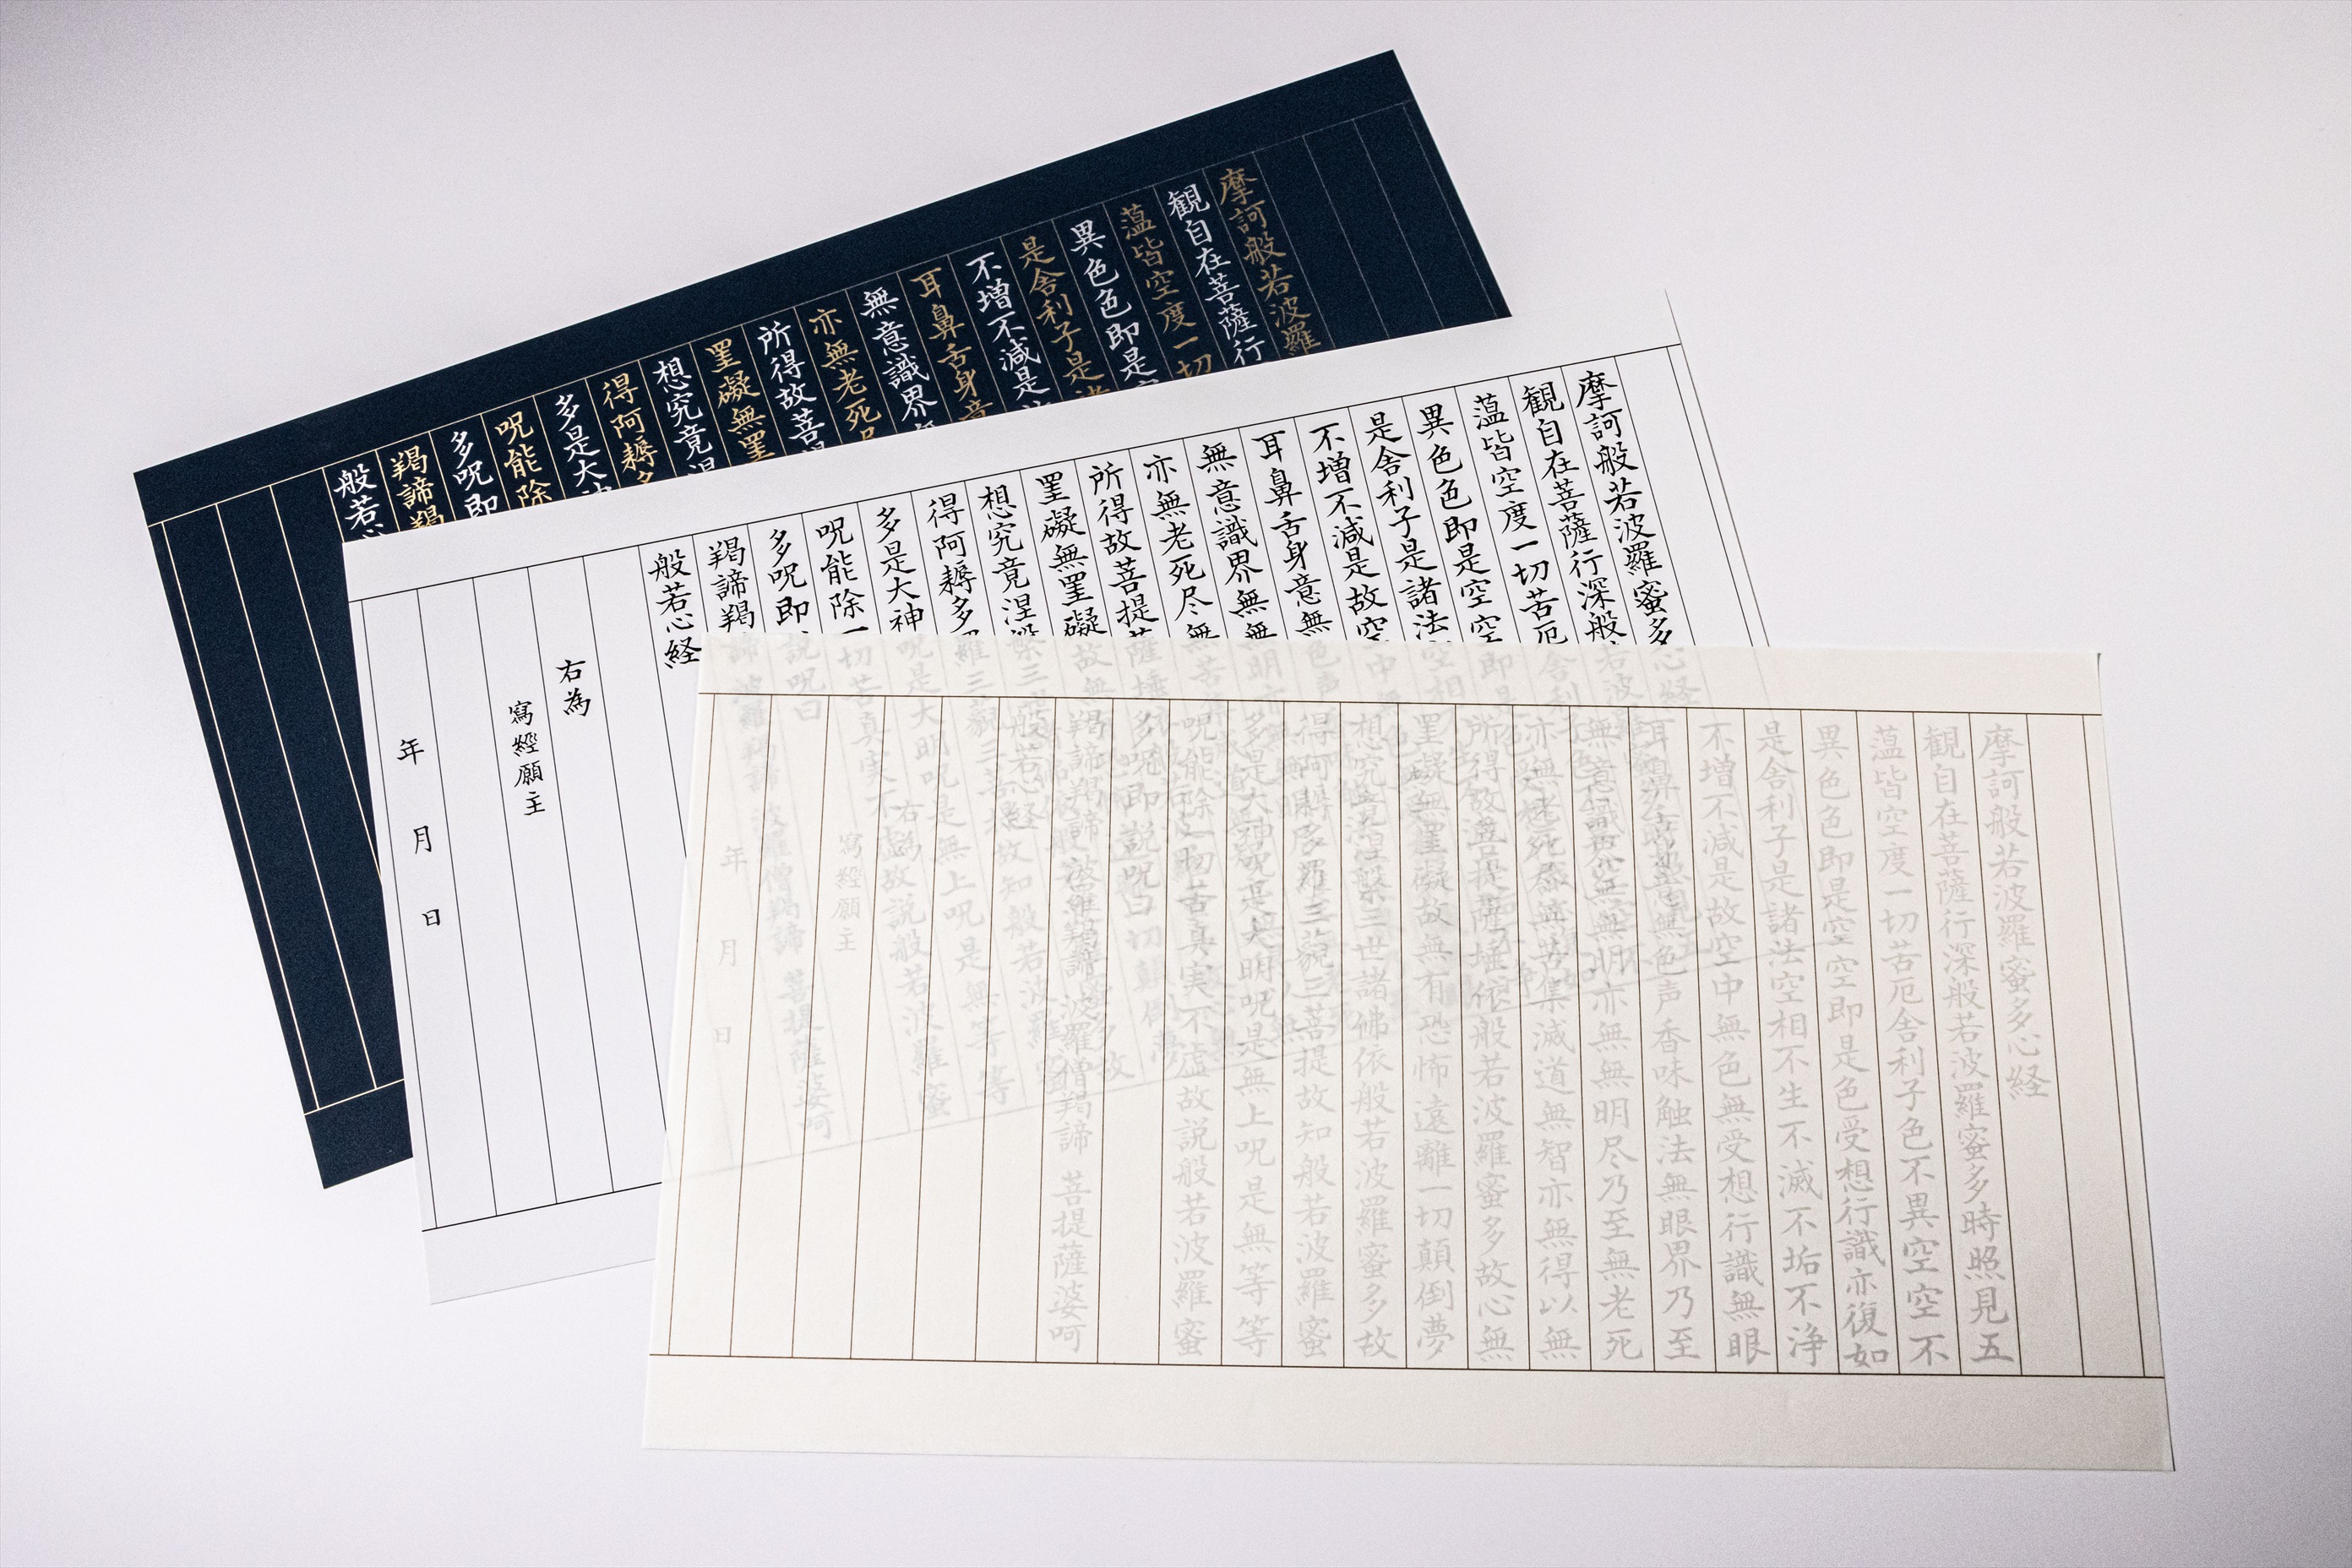 摩訶般若波羅
観自在菩薩行
薀皆空度一切
異色色即是
是舎利子是
不増不減是
耳鼻舌身意
無意識界
亦無老死
所得故菩
罣礙無罣
想究竟涅
得阿耨
多是大
呪能除
多呪即
羯諦羯
般若心
摩訶般若波羅蜜多心経
観自在菩薩行深般若波羅
薀皆空度一切苦厄舎利
異色色即是空空即是
是舎利子是諸法空相
不増不減是故空中
耳鼻舌身意無色声
無意識界無無明
亦無老死尽無苦
所得故菩提薩埵
罣礙無罣礙故無
想究竟涅槃三
得阿耨多羅三藐三菩提故知般若波羅蜜
多是大神呪是大明呪是無上呪是無等等
呪能除一切苦真実不虚故説般若波羅蜜
多呪即説呪曰
羯諦羯諦 波羅羯諦 波羅僧羯諦 菩提薩婆呵
般若心経
右為
寫經願主
年 月 日
摩訶般若波羅蜜多心経
観自在菩薩行深般若波羅蜜多時照見五
薀皆空度一切苦厄舎利子色不異空空不
異色色即是空空即是色受想行識亦復如
是舎利子是諸法空相不生不滅不垢不浄
不増不減是故空中無色無受想行識無眼
耳鼻舌身意無色声香味触法無眼界乃至
無意識界無無明亦無無明尽乃至無老死
亦無老死尽無苦集滅道無智亦無得以無
所得故菩提薩埵依般若波羅蜜多故心無
罣礙無罣礙故無有恐怖遠離一切顛倒夢
想究竟涅槃三世諸佛依般若波羅蜜多故
得阿耨多羅三藐三菩提故知般若波羅蜜
多是大神呪是大明呪是無上呪是無等等
呪能除一切苦真実不虚故説般若波羅蜜
多呪即説呪曰
羯諦羯諦 波羅羯諦 波羅僧羯諦 菩提薩婆呵
般若心経
右為
寫經願主
年 月 日